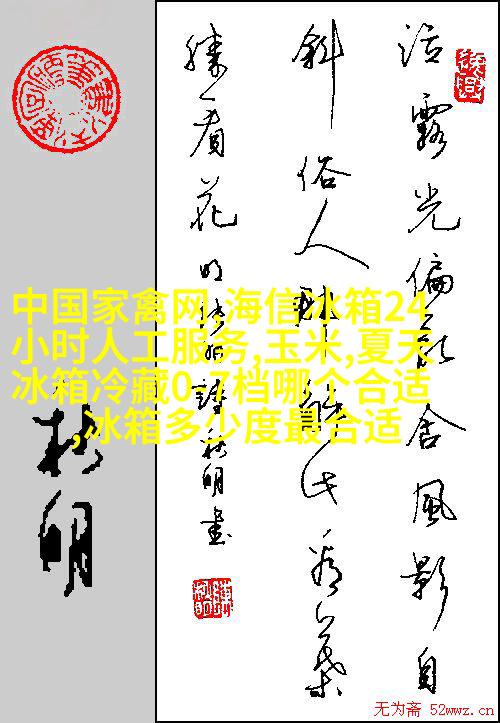 中国家禽网,海信冰箱24
小时人工服务,玉米,夏天
冰箱冷藏0-7档哪个合适
,冰箱多少度最合适
露光偏乱含风影自
斜俗人那能此看叶
胜看花
秋明书
秋明
无为斋 52wwz.cn